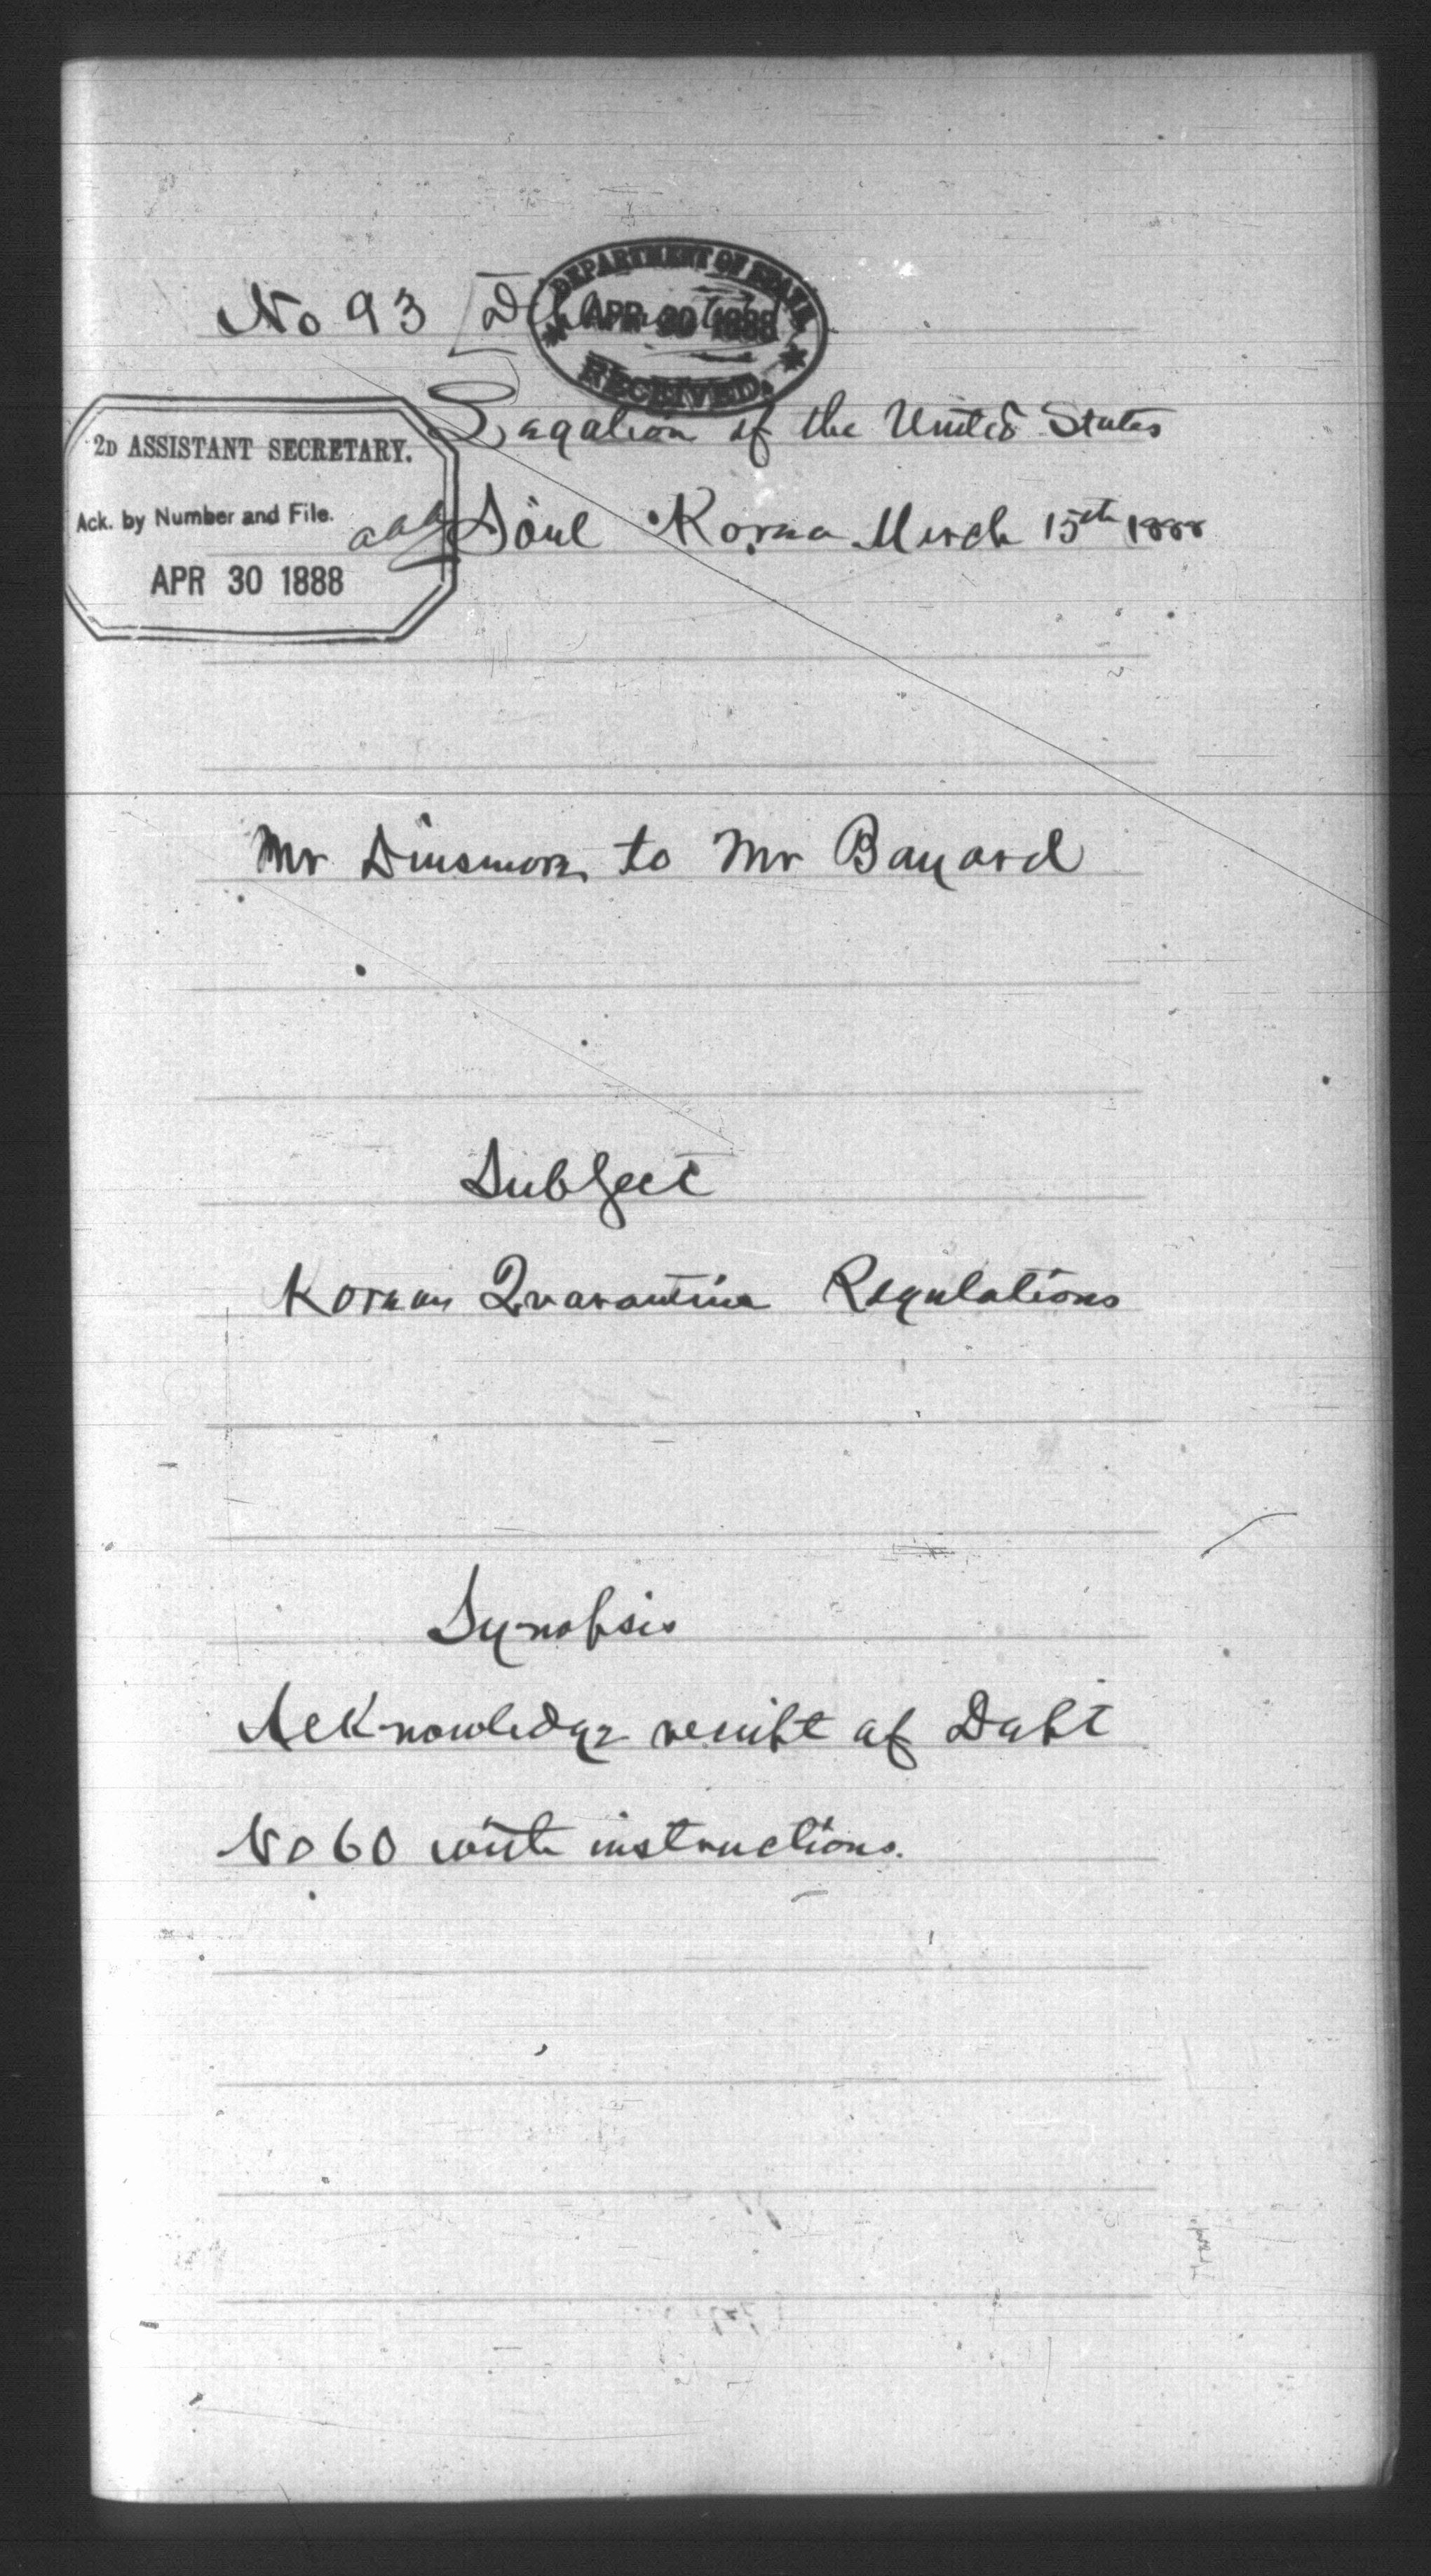 No 93
DEPARTMENT OF STATE
APR 30 1888
RECEIVED.
Legation of the United States
2D ASSISTANT SECRETARY.
Ack. by Number and File.
APR 30 1888
Söul Korea March 15th 1888
Mr Dinsmore to Mr Bayard
Subject
Korean Quarantine Regulations
Synopsis
Acknowledge receipt of Dept
No 60 with instructions.